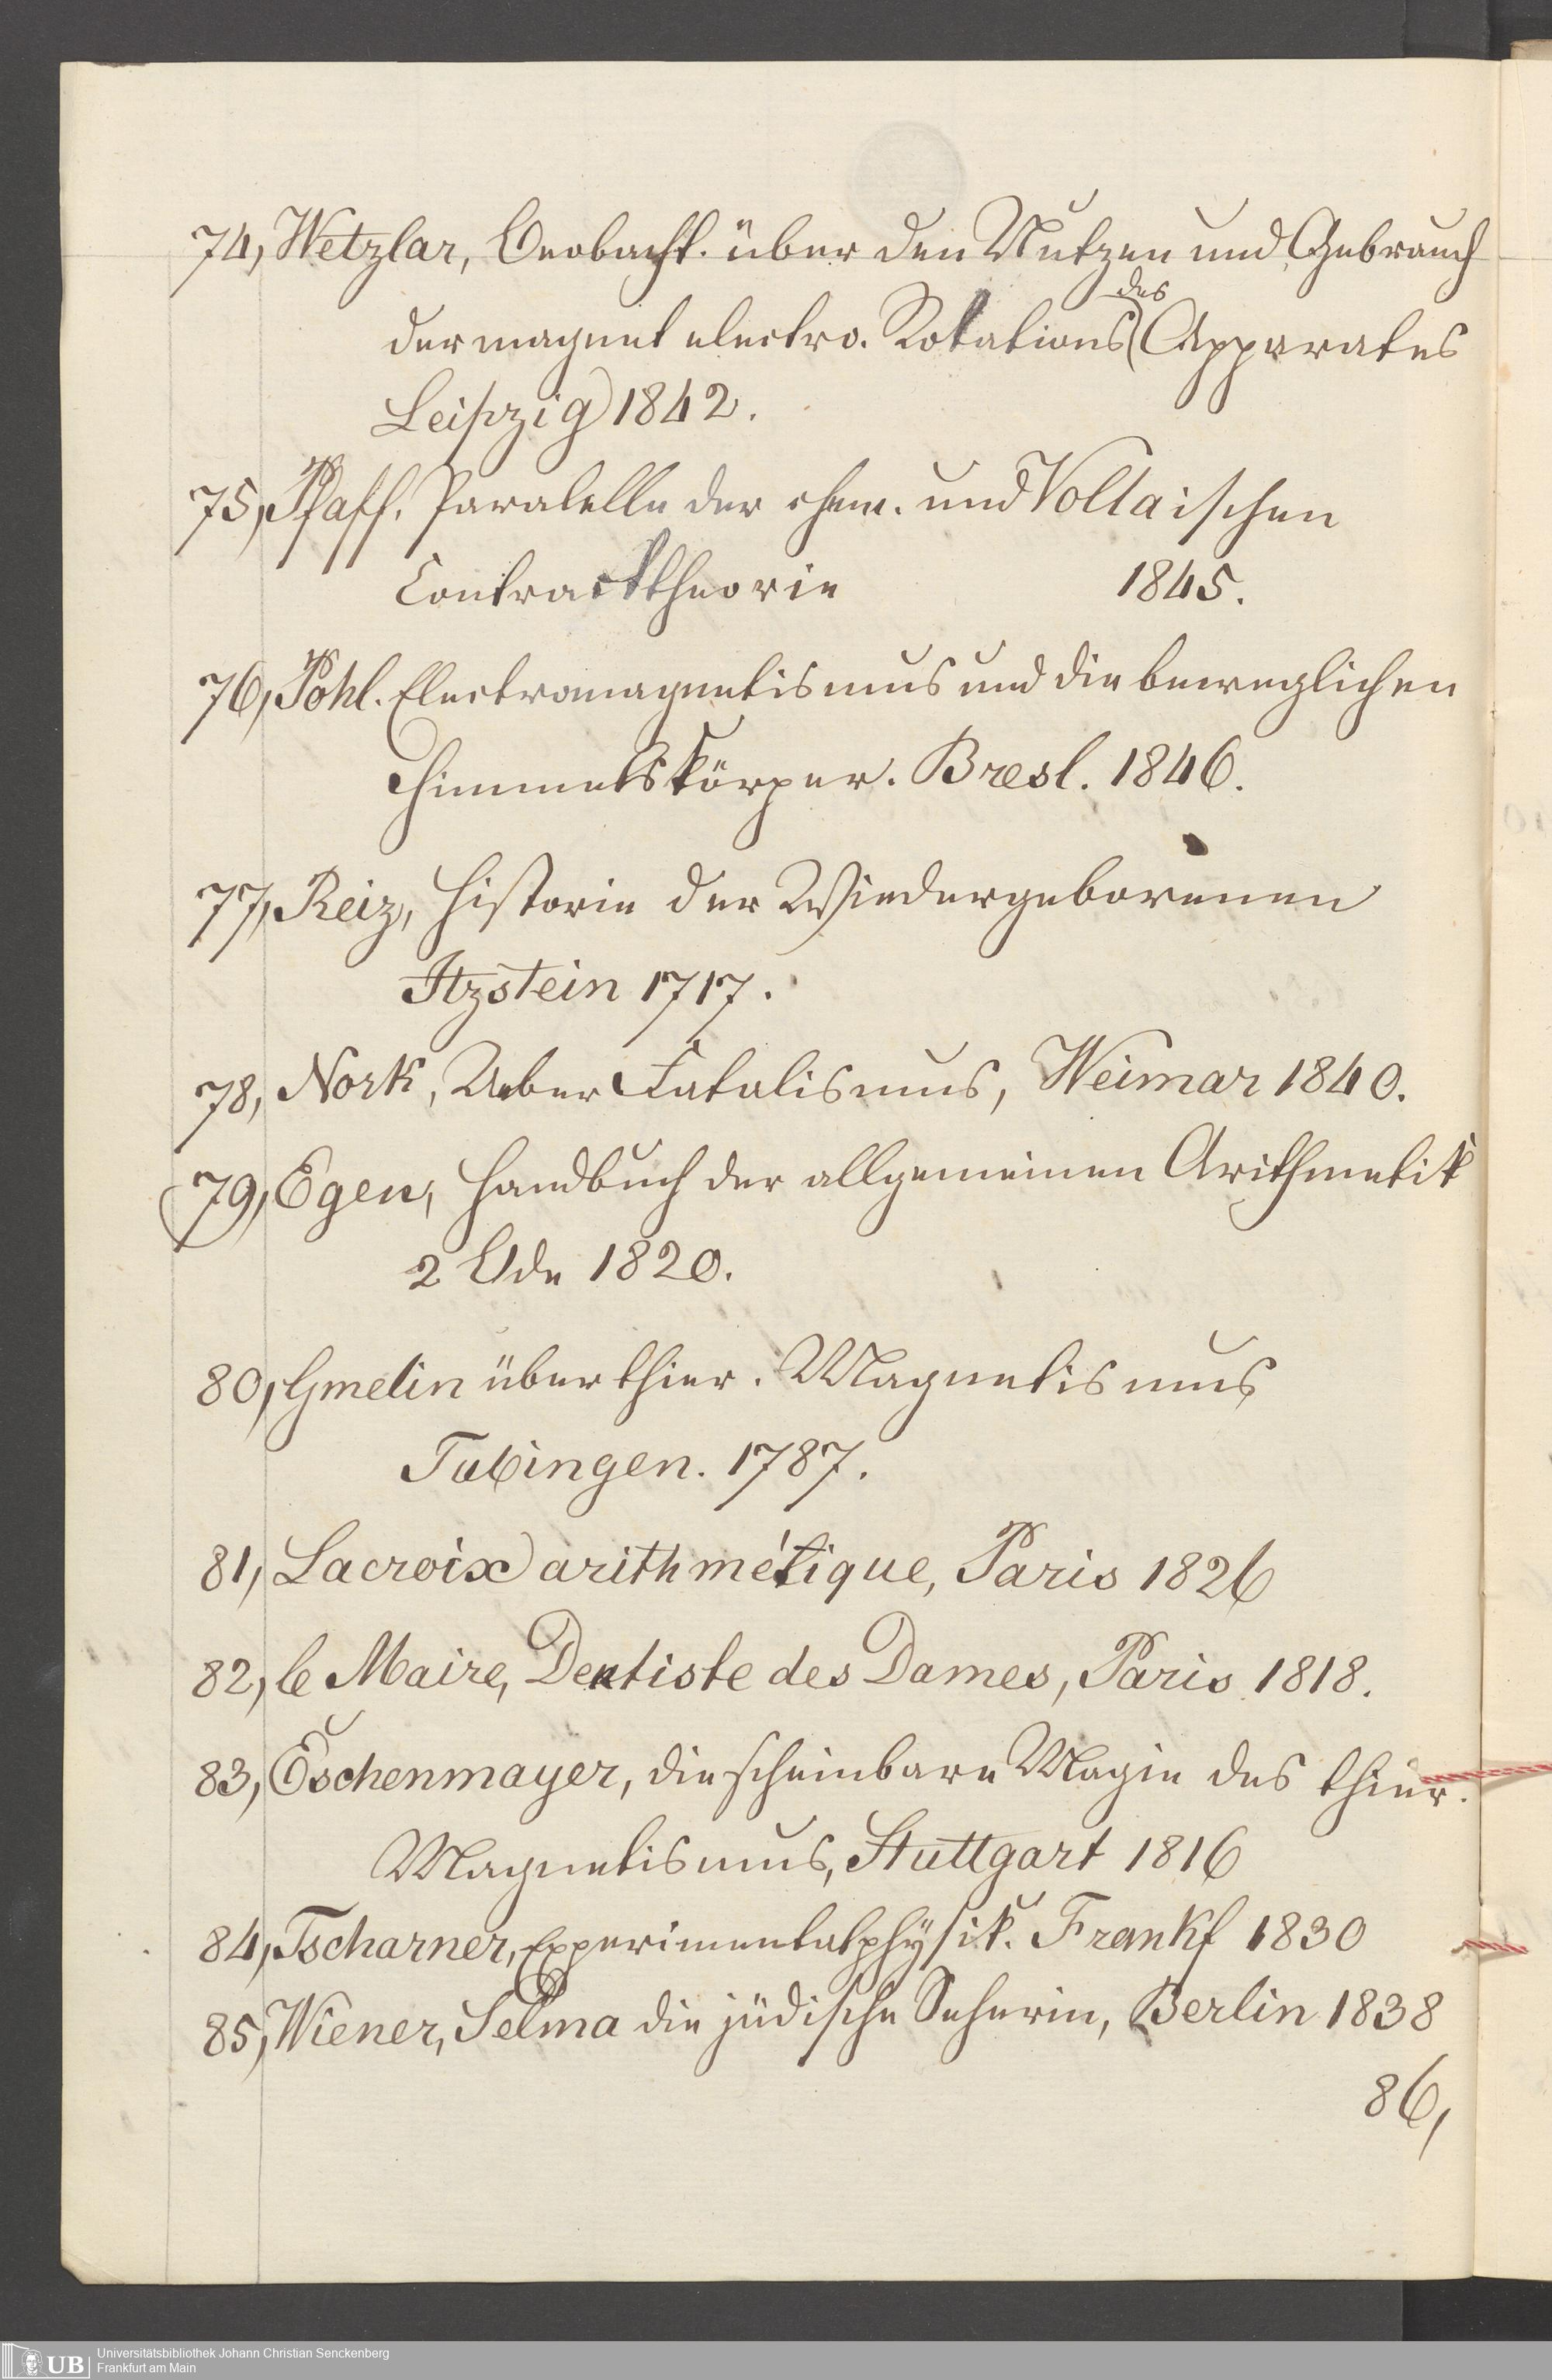 74, Wetzlar, Beobacht. über den Nutzen und Gebrauch
des
der magnet electro. Rotations Apparates
Leipzig 1842.
75, Pfaff. Paralelle der chem. und Voltaischen
Contracttheorie 1845.
76, Pohl. Electromagnetismus und die beweglichen
Himmelskörper. Bresl. 1846.
77, Reiz, Historie der Wiedergeborenen
Itzstein 1717.
78, Nork, Ueber Fatalismus, Weimar 1840.
79, Egen, Handbuch der allgemeinen Arithmetik
2 Bde 1820.
80, Gmelin über thier. Magnetismus
Tubingen. 1787.
81, Lacroix arithmétique, Paris 1826
82, le Maire, Dentiste des Dames, Paris 1818.
83, Eschenmayer, die scheinbare Magie des thier.
Magnetismus, Stuttgart 1816
84, Tscharner, Experimentalphysik. Frankf 1830
85, Wiener, Selma die jüdische Seherin, Berlin 1838
86,
UB Universitätsbibliothek Johann Christian Senckenberg
Frankfurt am Main